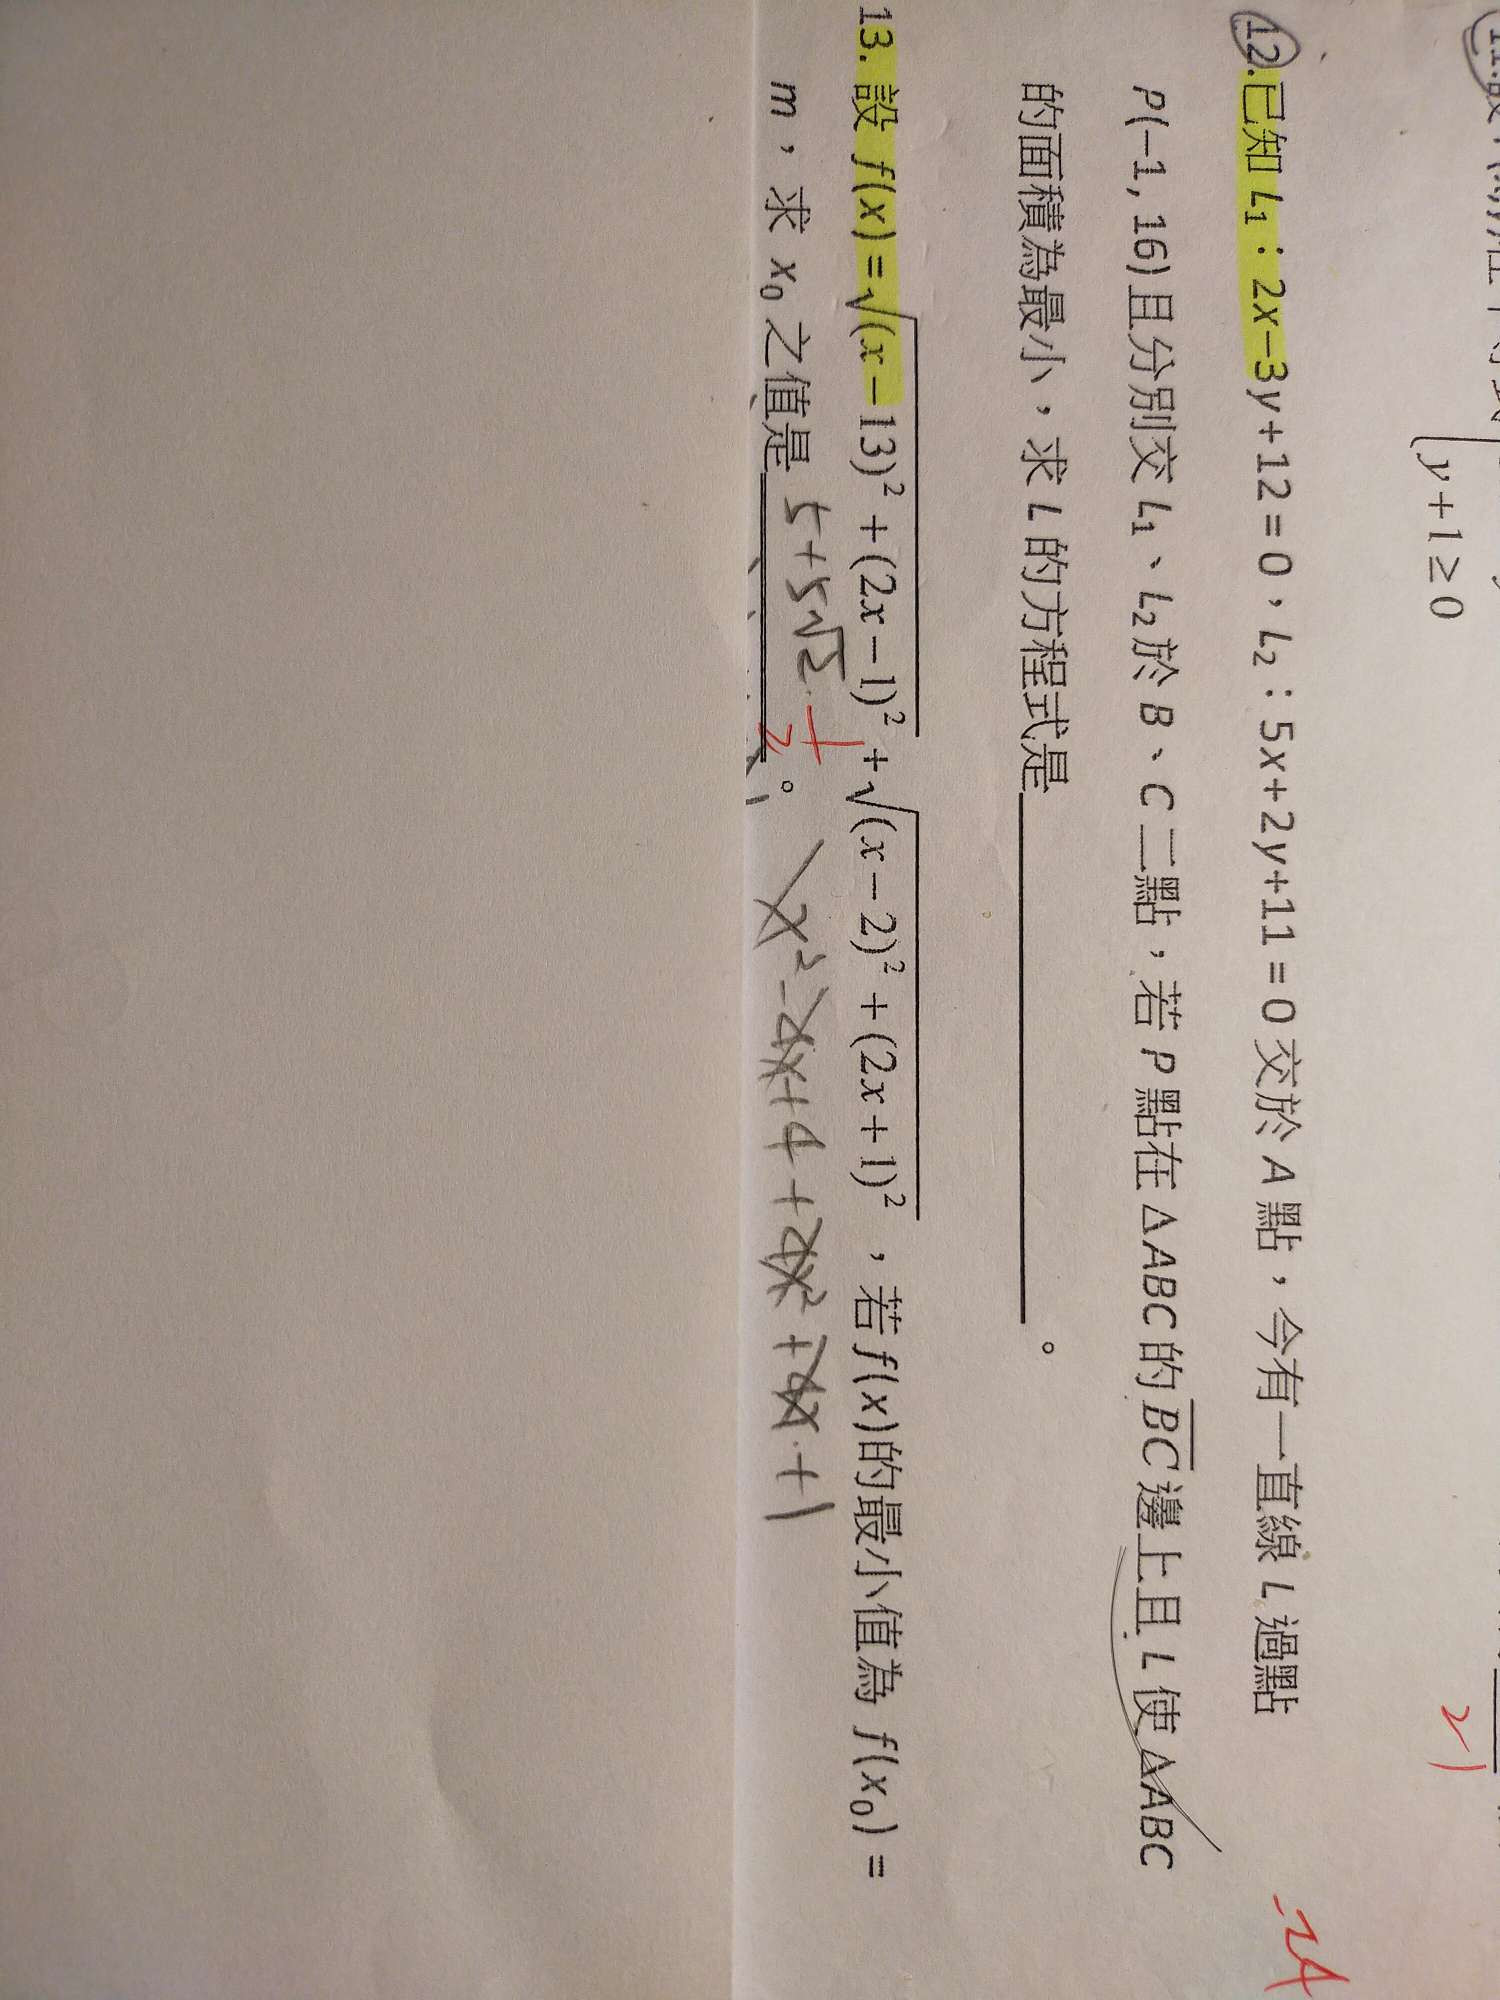 y+1≥0
21
-24
12.已知 L₁：2x-3y+12=0，L₂：5x+2y+11=0 交於 A 點，今有一直線 L 過點
P(-1, 16)且分別交 L₁、L₂於 B、C 二點，若 P 點在 ΔABC 的 \overline{BC} 邊上且 L 使 ΔABC
的面積為最小，求 L 的方程式是____________。
13. 設 f(x)=√((x-13)²+(2x-1)²)+√((x-2)²+(2x+1)²)，若 f(x)的最小值為 f(x₀)=
m，求 x₀ 之值是 5+5√2 。 x²-4x+4+4x²+4x+1